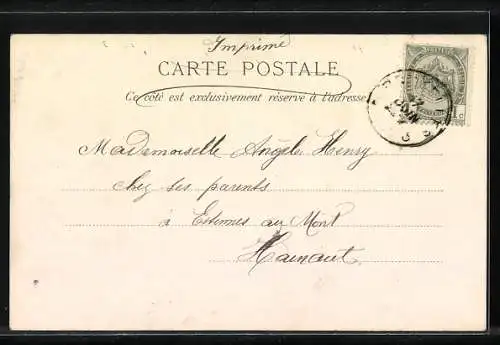 Imprimé
CARTE POSTALE
Ce côté est exclusivement réservé à l'adresse
Mademoiselle Angèle Henry
chez ses parents
à Estinnes au Mont
Hainaut